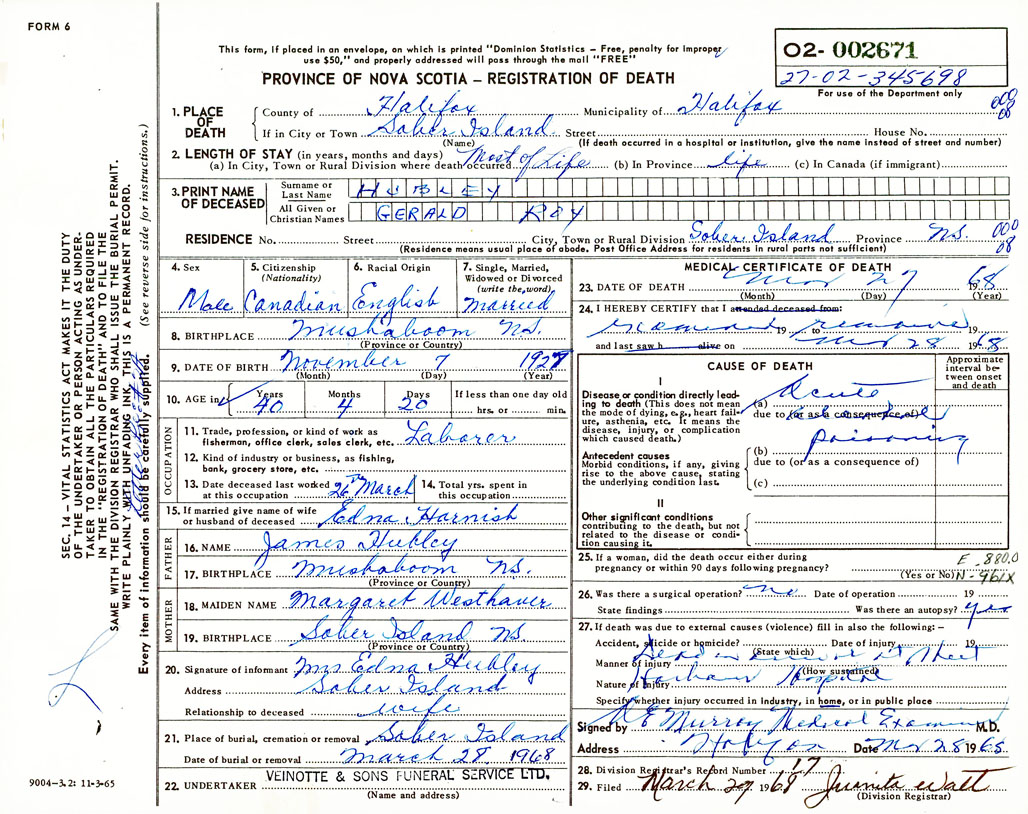 FORM 6
This form, if placed in an envelope, on which is printed "Dominion Statistics – Free, penalty for improper
use $50," and properly addressed will pass through the mail "FREE"
PROVINCE OF NOVA SCOTIA – REGISTRATION OF DEATH
02- 002671
27-02-345698
For use of the Department only
SEC. 14 – VITAL STATISTICS ACT MAKES IT THE DUTY
OF THE UNDERTAKER OR PERSON ACTING AS UNDER-
TAKER TO OBTAIN ALL THE PARTICULARS REQUIRED
IN THE "REGISTRATION OF DEATH" AND TO FILE THE
SAME WITH THE DIVISION REGISTRAR WHO SHALL ISSUE THE BURIAL PERMIT.
WRITE PLAINLY WITH UNFADING INK. THIS IS A PERMANENT RECORD.
Every item of information should be carefully supplied. (See reverse side for instructions.)
1. PLACE OF DEATH
County of Halifax Municipality of Halifax 000 08
If in City or Town Sober Island Street House No.
(Name) (If death occurred in a hospital or institution, give the name instead of street and number)
2. LENGTH OF STAY (in years, months and days)
(a) In City, Town or Rural Division where death occurred Most of Life (b) In Province life (c) In Canada (if immigrant)
3. PRINT NAME OF DECEASED
Surname or Last Name HUBLEY
All Given or Christian Names GERALD ROY
RESIDENCE No. Street City, Town or Rural Division Sober Island Province N.S. 000 08
(Residence means usual place of abode. Post Office Address for residents in rural parts not sufficient)
4. Sex Male
5. Citizenship (Nationality) Canadian
6. Racial Origin English
7. Single, Married, Widowed or Divorced (write the word) Married
8. BIRTHPLACE Mushaboom N.S.
(Province or Country)
9. DATE OF BIRTH November 7 1927
(Month) (Day) (Year)
10. AGE in Years 40 Months 4 Days 20 If less than one day old hrs. or min.
OCCUPATION
11. Trade, profession, or kind of work as
fisherman, office clerk, sales clerk, etc. Laborer
12. Kind of industry or business, as fishing,
bank, grocery store, etc.
13. Date deceased last worked at this occupation 26th March
14. Total yrs. spent in this occupation
15. If married give name of wife
or husband of deceased Edna Harnish
FATHER
16. NAME James Hubley
17. BIRTHPLACE Mushaboom N.S.
(Province or Country)
MOTHER
18. MAIDEN NAME Margaret Westhaver
19. BIRTHPLACE Sober Island N.S.
(Province or Country)
20. Signature of informant Mrs Edna Hubley
Address Sober Island
Relationship to deceased wife
21. Place of burial, cremation or removal Sober Island
Date of burial or removal March 28 1968
22. UNDERTAKER VEINOTTE & SONS FUNERAL SERVICE LTD.
(Name and address)
9004–3.2: 11-3-65
MEDICAL CERTIFICATE OF DEATH
23. DATE OF DEATH Mar 27 1968
(Month) (Day) (Year)
24. I HEREBY CERTIFY that I attended deceased from:
19 to
and last saw h alive on Mar 28 1968
CAUSE OF DEATH
Approximate interval between onset and death
I
Disease or condition directly lead-
ing to death (This does not mean
the mode of dying, e.g., heart fail-
ure, asthenia, etc. It means the
disease, injury, or complication
which caused death.)
(a) Acute
due to (or as a consequence of)
poisoning
Antecedent causes
Morbid conditions, if any, giving
rise to the above cause, stating
the underlying condition last.
(b)
due to (or as a consequence of)
(c)
II
Other significant conditions
contributing to the death, but not
related to the disease or condi-
tion causing it.
25. If a woman, did the death occur either during
pregnancy or within 90 days following pregnancy?
(Yes or No)
E. 880.0
N-961X
26. Was there a surgical operation? no Date of operation 19
State findings Was there an autopsy? yes
27. If death was due to external causes (violence) fill in also the following: –
Accident, suicide or homicide? Date of injury 19
(State which)
Manner of injury Dead on at Sheet
(How sustained)
Nature of injury Harbour Hospital
Specify whether injury occurred in industry, in home, or in public place
Signed by R E Murray Medical Examiner M.D.
Address Halifax Date Mar 28 1968
28. Division Registrar's Record Number 17
29. Filed March 29 1968 Juanita Watt
(Division Registrar)